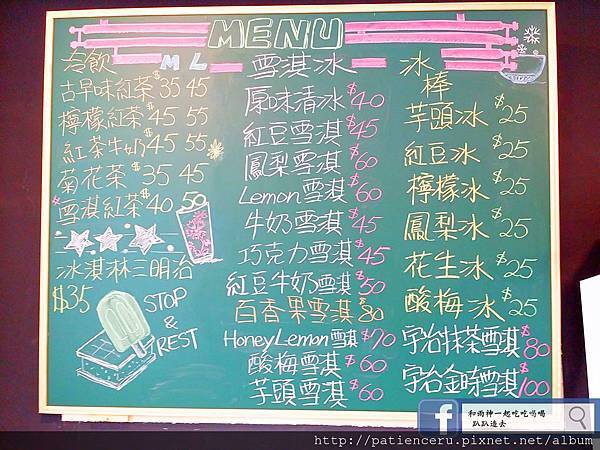 MENU
冷飲 M L
古早味紅茶 $35 45
檸檬紅茶 $45 55
紅茶牛奶 $45 55
菊花茶 $35 45
*雪淇紅茶 $40 50
冰淇淋三明治
$35
STOP
&
REST
雪淇冰
原味清冰 $40
紅豆雪淇 $45
鳳梨雪淇 $60
Lemon雪淇 $60
牛奶雪淇 $45
巧克力雪淇 $45
紅豆牛奶雪淇 $50
百香果雪淇 $80
HoneyLemon雪淇 $70
酸梅雪淇 $60
芋頭雪淇 $60
冰棒
芋頭冰 $25
紅豆冰 $25
檸檬冰 $25
鳳梨冰 $25
花生冰 $25
酸梅冰 $25
宇治抹茶雪淇 $80
宇治金時雪淇 $100
和雨神一起吃吃喝喝
趴趴造去
http://patienceru.pixnet.net/album